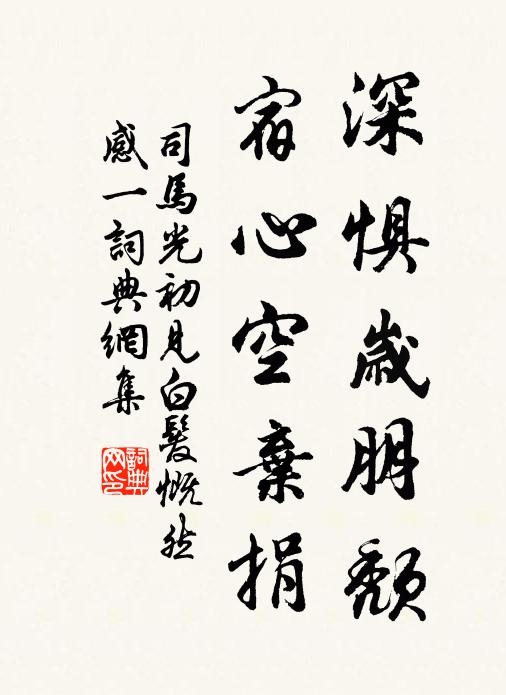 深惧歲朋頹
宿心空棄捐
司馬光初見白髮慨然
感一詞典網集
詞典
网印